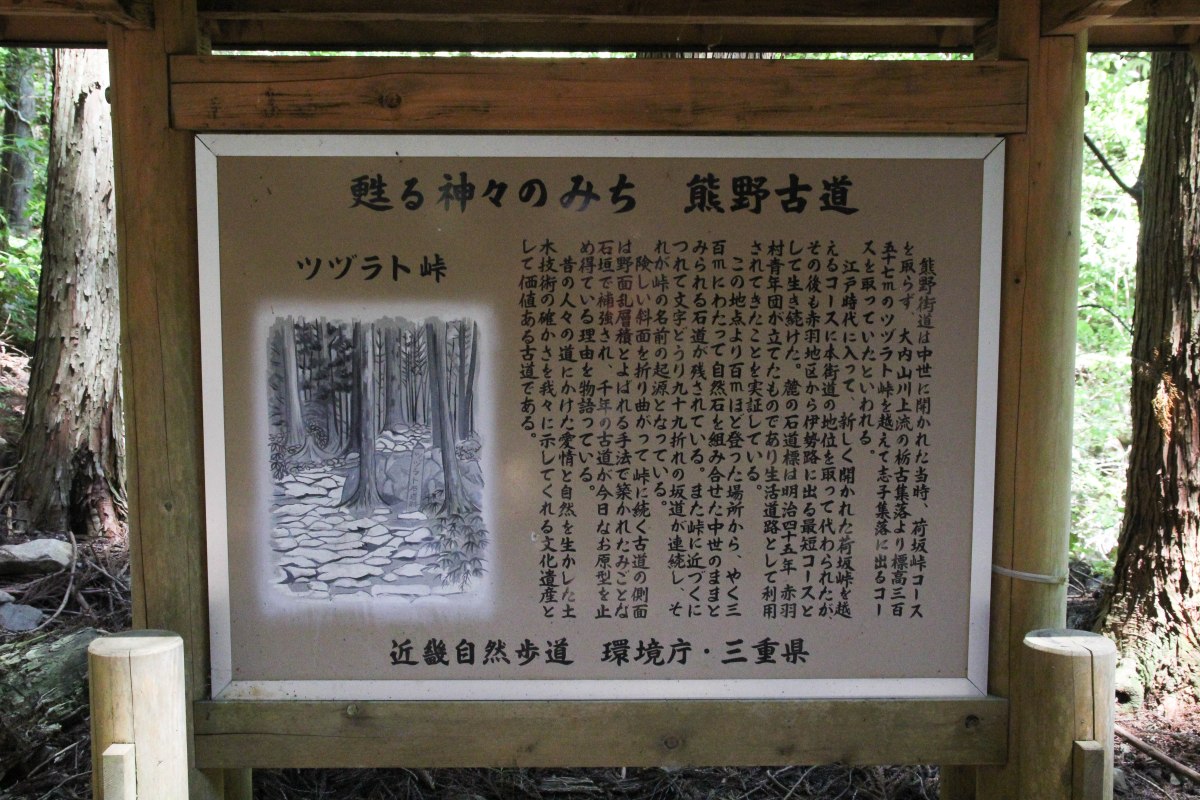 甦る神々のみち　熊野古道
ツヅラト峠
熊野街道は中世に開かれた当時、荷坂峠コース
を取らず、大内山川上流の栃古集落より標高三百
五十七mのツヅラト峠を越えて志子集落に出るコー
スを取っていたといわれる。
江戸時代に入って、新しく開かれた荷坂峠を越
えるコースに本街道の地位を取って代わられたが、
その後も赤羽地区から伊勢路に出る最短コースと
して生き続けた。麓の石道標は明治四十五年、赤羽
村青年団が立てたものであり生活道路として利用
されてきたことを実証している。
この地点より百mほど登った場所から、やく三
百mにわたって自然石を組み合せた中世のままと
みられる石道が残されている。また峠に近づくに
つれて文字どうり九十九折れの坂道が連続し、そ
れが峠の名前の起源となっている。
険しい斜面を折り曲がって峠に続く古道の側面
は野面乱層積とよばれる手法で築かれたみごとな
石垣で補強され、千年の古道が今日なお原型を止
め得ている理由を物語っている。
昔の人々の道にかけた愛情と自然を生かした土
木技術の確かさを我々に示してくれる文化遺産と
して価値ある古道である。
近畿自然歩道　環境庁・三重県